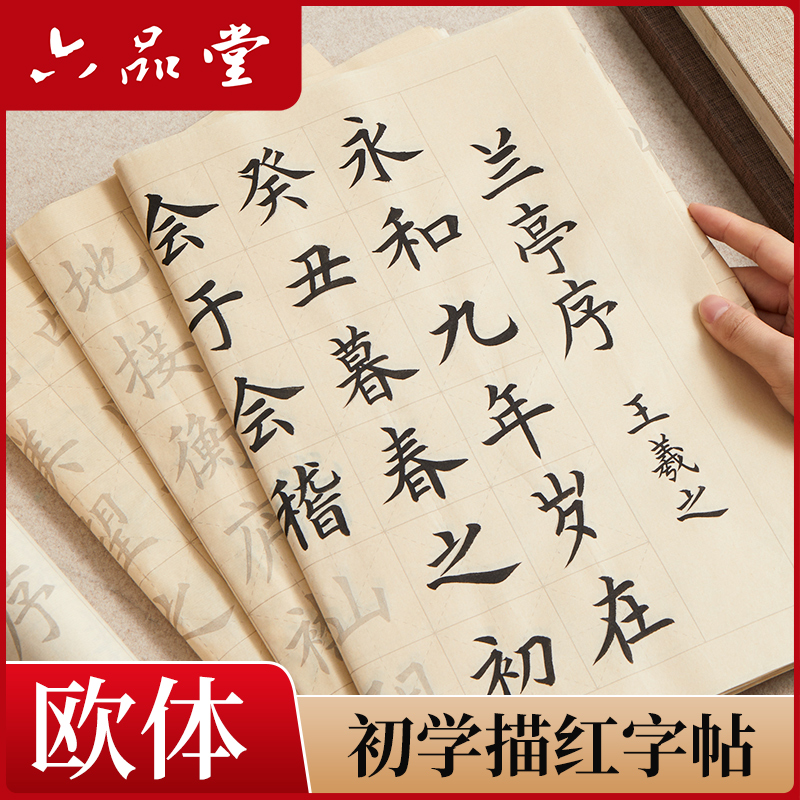 六品堂
兰亭序
王羲之
永和九年岁在
癸丑暮春之初
会于会稽山
地接衡庐
望
序
欧体
初学描红字帖